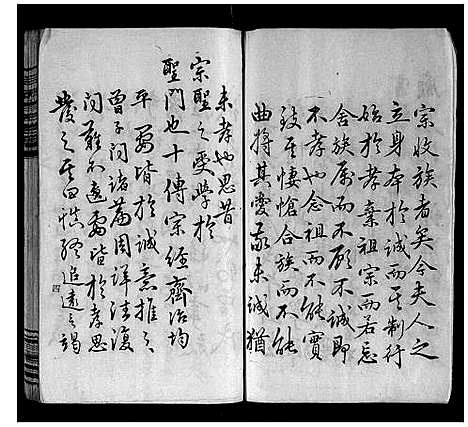 宗收族者矣今夫人之
立身本於誠而其制行
始於孝棄祖宗而若忘
舍族属而不顧不誠即
不孝也念祖而不能實
致其悽愴合族而不能
曲摶其愛敬未誠猶
未孝也思昔
宗聖之受學於
聖門也十傳宗經齊治均
平要皆於誠意推之
曾子問諸篇周詳往復
問難不遠要皆於孝思
發之其曰慎終追遠之謁
四